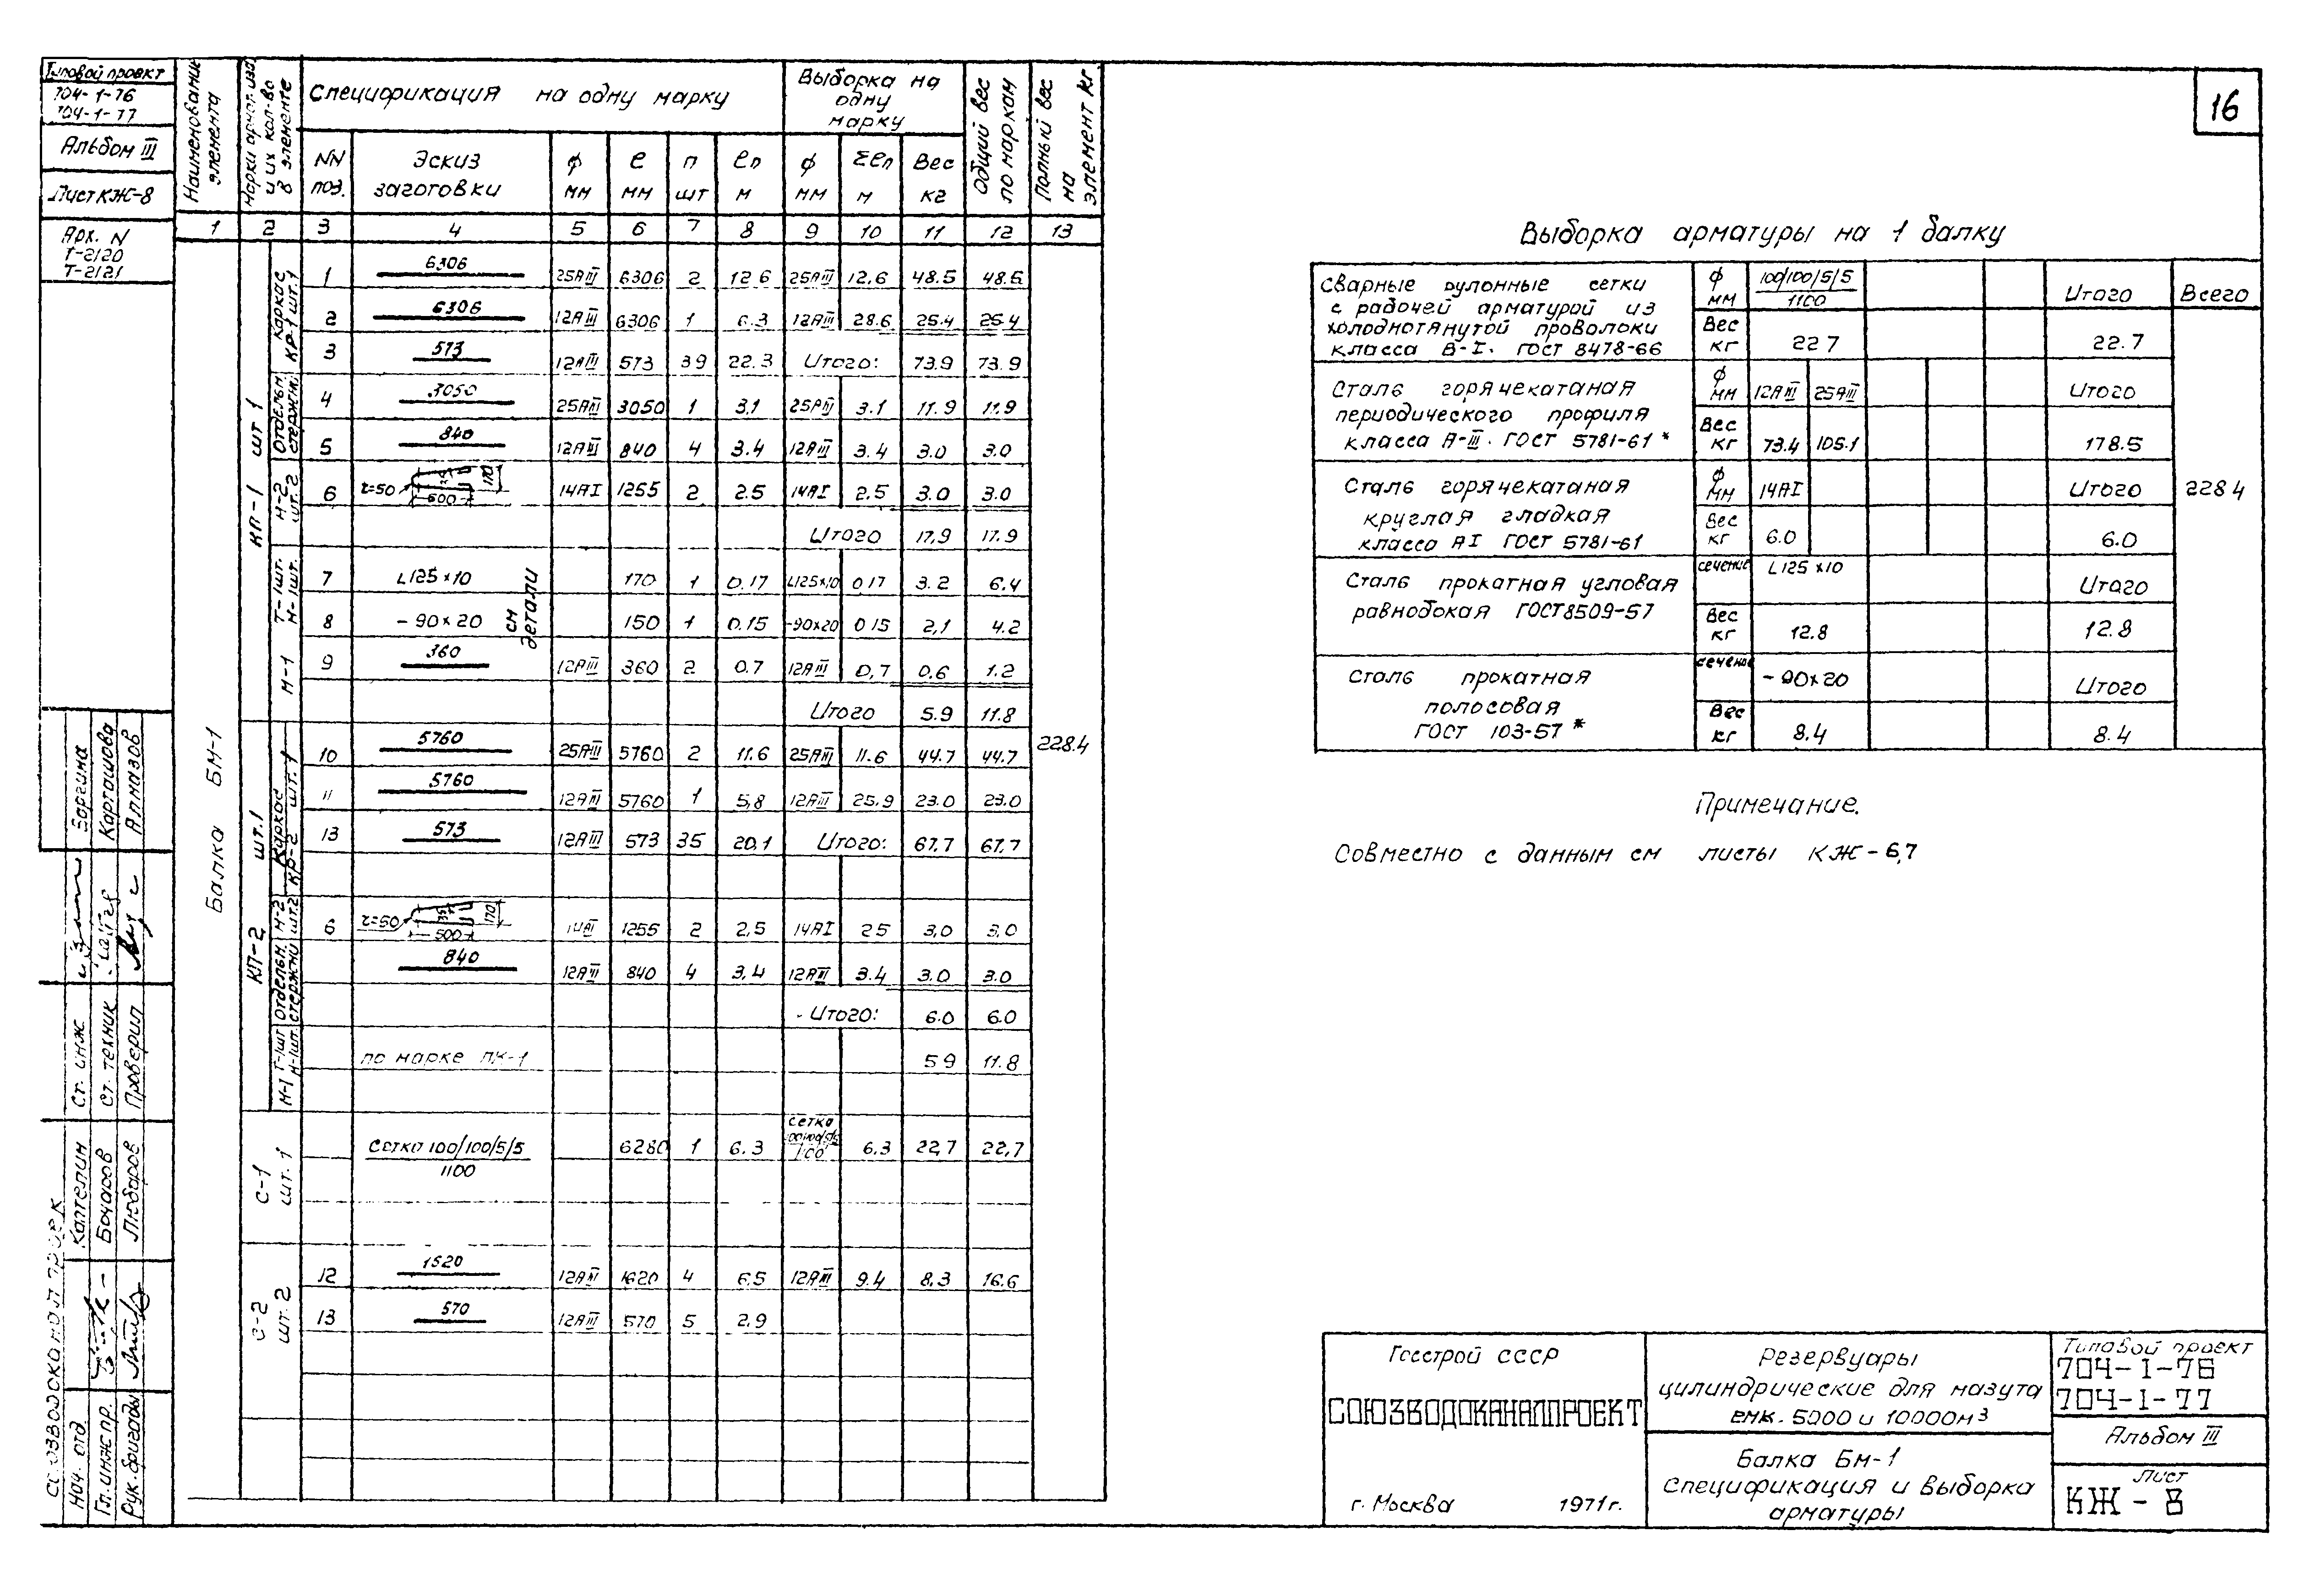 Типовой проект
704-1-76
704-1-77
Альбом III
Лист КЖ-8
Арх. N
Т-2120
Т-2121
Наименование элемента
Марки армат. изд. и их кол-во в элементе
Спецификация на одну марку
Выборка на одну марку
Общий вес по маркам
Полный вес на элемент кг
NN поз.
Эскиз заготовки
ф мм
ℓ мм
п шт
ℓп м
ф мм
Σℓп м
Вес кг
1 2 3 4 5 6 7 8 9 10 11 12 13
Балка БМ-1
228.4
КП-1 шт 1
Каркас КР-1 шт.1
1 6306 25АIII 6306 2 12.6 25АIII 12.6 48.5 48.5
2 6306 12АIII 6306 1 6.3 12АIII 28.6 25.4 25.4
3 573 12АIII 573 39 22.3 Итого: 73.9 73.9
Отдельн. стержни.
4 3050 25АIII 3050 1 3.1 25АIII 3.1 11.9 11.9
5 840 12АIII 840 4 3.4 12АIII 3.4 3.0 3.0
М-2 шт. 2
6 r=50 500 170 14АI 1255 2 2.5 14АI 2.5 3.0 3.0
Итого 17.9 17.9
Т-1шт. М-1шт.
7 L125×10 170 1 0.17 L125×10 0.17 3.2 6.4
8 -90×20 150 1 0.15 -90×20 0.15 2,1 4.2
см детали
М-1
9 360 12АIII 360 2 0.7 12АIII 0,7 0,6 1.2
Итого 5.9 11.8
КП-2 шт.1
Каркас КР-2 шт. 1
10 5760 25АIII 5760 2 11.6 25АIII 11.6 44.7 44.7
11 5760 12АIII 5760 1 5,8 12АIII 25.9 23.0 23.0
13 573 12АIII 573 35 20.1 Итого: 67.7 67.7
М-2 шт.2
6 r=50 500 170 14АI 1255 2 2,5 14АI 2.5 3,0 3,0
Отдельн. стержни
840 12АIII 840 4 3.4 12АIII 3.4 3.0 3.0
- Итого: 6.0 6.0
М-1 Т-1шт М-1шт.
по марке ПК-1 5.9 11.8
С-1 шт. 1
Сетка 100/100/5/5
1100
6280 1 6.3 сетка 6.3 22,7 22,7
С-2 шт. 2
12 1620 12АIII 1620 4 6.5 12АIII 9.4 8.3 16.6
13 570 12АIII 570 5 2.9
16
Выборка арматуры на 1 балку
Сварные рулонные сетки
с рабочей арматурой из
холоднотянутой проволоки
класса В-I. ГОСТ 8478-66
ф мм 100/100/5/5
1100
Итого Всего
Вес кг 22 7 22.7
Сталь горячекатаная
периодического профиля
класса А-III. ГОСТ 5781-61*
ф мм 12АIII 25АIII Итого
Вес кг 73.4 105.1 178.5
Сталь горячекатаная
круглая гладкая
класса АI ГОСТ 5781-61
ф мм 14АI Итого 228 4
Вес кг 6.0 6.0
Сталь прокатная угловая
равнобокая ГОСТ 8509-57
сечение L125×10 Итого
Вес кг 12.8 12.8
Сталь прокатная
полосовая
ГОСТ 103-57*
сечение -90×20 Итого
Вес кг 8.4 8.4
Примечание.
Совместно с данным см листы КЖ-6,7
СОЮЗВОДОКАНАЛПРОЕКТ
Нач. отд. Каптелин Ст. инж
Гл. инж пр. Бочаров Ст. техник Карташова
Рук. бригады Любаров Проверил Алмазов
Госстрой СССР
СОЮЗВОДОКАНАЛПРОЕКТ
г. Москва 1971г.
Резервуары
цилиндрические для мазута
емк. 5000 и 10000м3
Балка Бм-1
Спецификация и выборка
арматуры
Типовой проект
704-1-76
704-1-77
Альбом III
Лист
КЖ-8